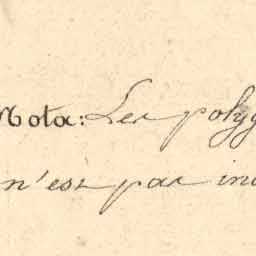 Nota: Les polyg
n'est pas ind